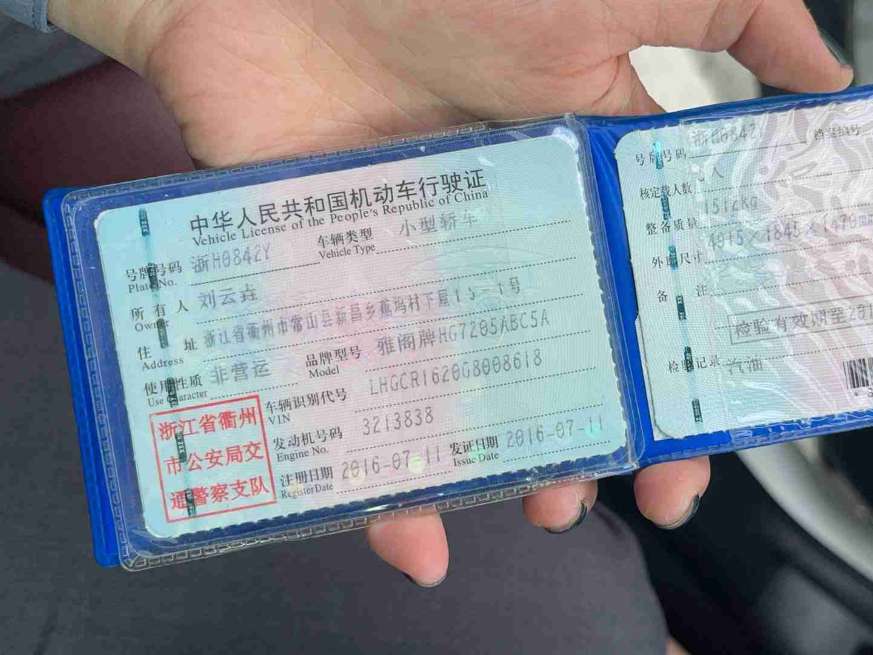 中华人民共和国机动车行驶证
Vehicle License of the People's Republic of China
号牌号码 浙H0842Y 车辆类型 小型轿车
Plate No. Vehicle Type
所有人 刘云垚
Owner
住址 浙江省衢州市常山县新昌乡 村下屋15-1号
Address
使用性质 非营运 品牌型号 雅阁牌HG7205ABC5A
Use Character Model
车辆识别代号 LHGCR1620G8008618
VIN
发动机号码 3213838
Engine No.
注册日期 2016-07-11 发证日期 2016-07-11
Register Date Issue Date
浙江省衢州
市公安局交
通警察支队
号牌号码 浙H0842Y 档案编号
核定载人数 人
整备质量 1512kg
外廓尺寸 4915×1845×1479mm
备注
检验有效期至201
检验记录 汽油